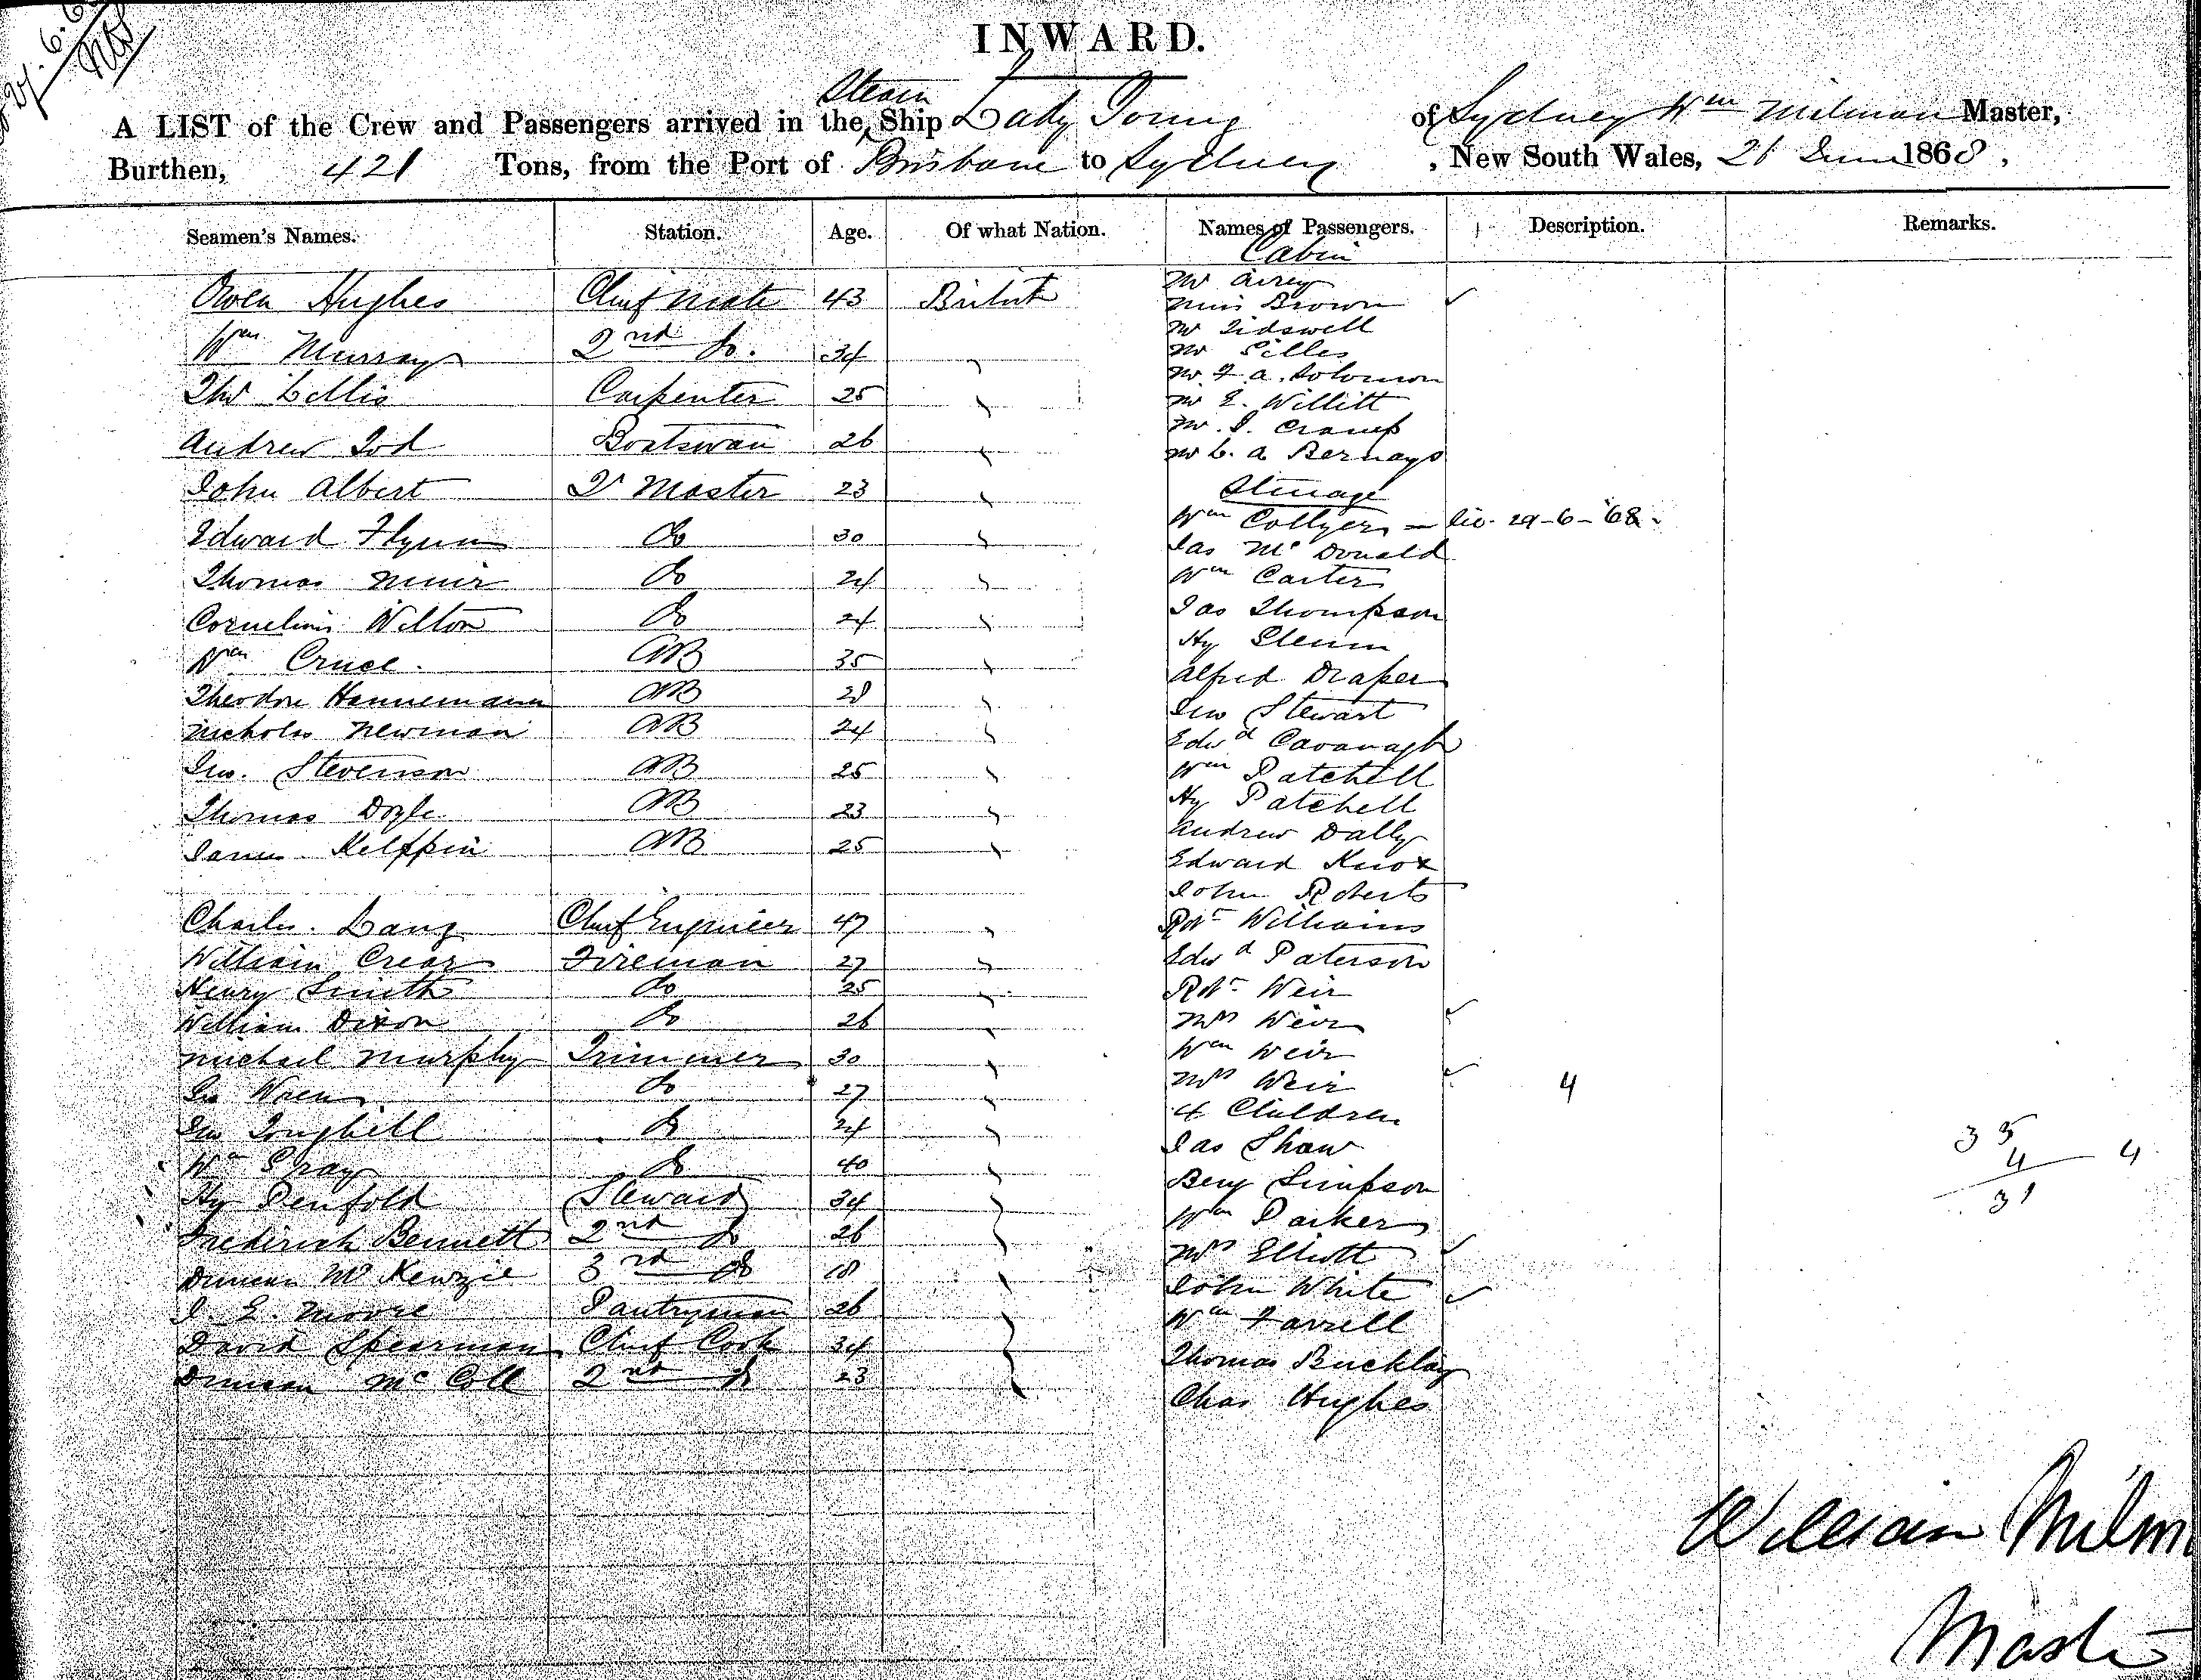 27.6.6
INWARD.
A LIST of the Crew and Passengers arrived in the Steam Ship Lady Young of Sydney Wm Milman Master,
Burthen, 421 Tons, from the Port of Brisbane to Sydney, New South Wales, 26 June 1868,
Seamen's Names. Station. Age. Of what Nation. Names of Passengers. Description. Remarks.
Cabin
Owen Hughes Chief Mate 43 British
Wm Murray 2nd Do. 34
Thos Lellis Carpenter 25
Andrew Tod Boatswan 26
John Albert Qr Master 23
Edward Flynn Do 30
Thomas Muir Do 24
Cornelius Wilton Do 24
Wm Cruce. AB 35
Theodore Hannemann AB 28
Nicholas Newman AB 24
Jno. Stevenson AB 25
Thomas Doyle AB 23
James Kelppin AB 25
Charles Lang Chief Engineer 47
William Crear Fireman 27
Henry Smith Do 25
William Dixon Do 26
Michael Murphy Trimmer 30
Geo Wren Do 27
Jno Toughill Do 24
Wm Gray Do 40
Hy Penfold Steward 34
Frederick Bennett 2nd Do 26
Duncan McKenzie 3rd Do 18
J. E. Moore Pantryman 26
David Spearman Chief Cook 34
Duncan McColl 2nd Do 23
Mr Airey
Miss Brown
Mr Tidswell
Mr Gilles
Mr F. A. Solomon
Mr E. Willitt
Mr. J. Cramp
Mr L. A Bernays
Steerage
Wm Collyer - 29-6-68.
Jas McDonald
Wm Carter
Jas Thompson
Hy Glenn
Alfred Draper
Jno Stewart
Edwd Cavanagh
Wm Patchell
Hy Patchell
Andrew Dally
Edward Knox
John Roberts
Robt Williams
Edwd Paterson
Robt Weir
Mrs Weir
Wm Weir
Mrs Weir
4 Children 4
Jas Shaw
Benj Simpson
Wm Parker
Mrs Elliott
John White
Wm Farrell
Thomas Buckley
Chas Hughes
35
4 4
31
William Milm
Master